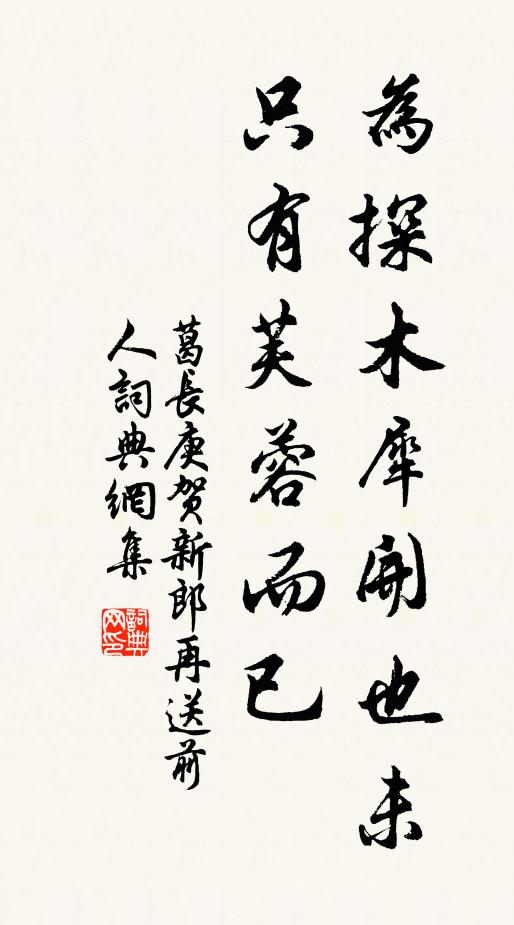 為探木犀開也未
只有芙蓉而已
葛長庚賀新郎再送前
人詞典網集
詞典
网印